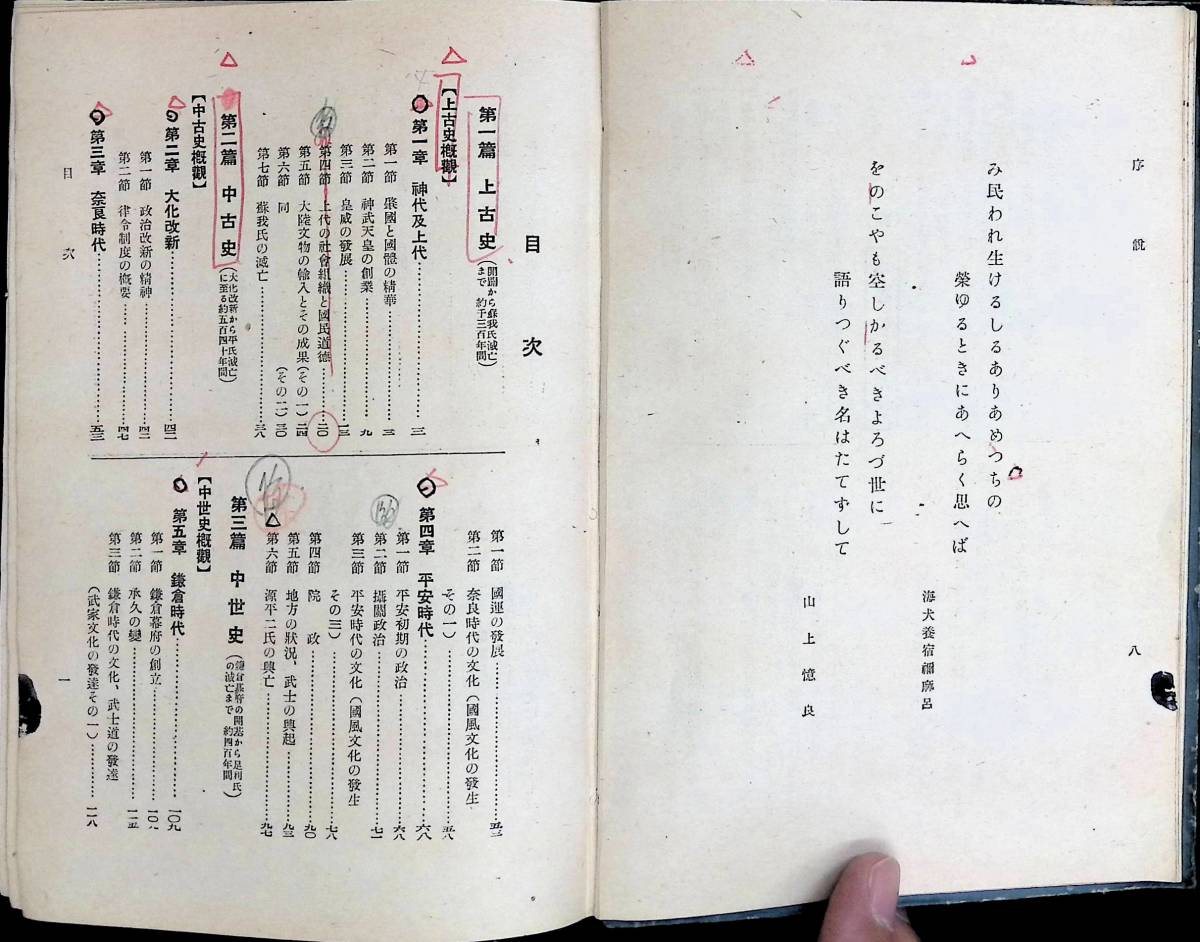 序說
八
み民われ生けるしるありあめつちの
榮ゆるときにあへらく思へば
海犬養宿禰麻呂
をのこやも空しかるべきよろづ世に
語りつぐべき名はたてずして
山上憶良
目次
第一篇 上古史(開闢から蘇我氏滅亡まで 約千三百年間)
【上古史概觀】
第一章 神代及上代……三
第一節 肇國と國體の精華……三
第二節 神武天皇の創業……九
第三節 皇威の發展……一三
第四節 上代の社會組織と國民道德……二〇
第五節 大陸文物の輸入とその成果(その一)……二四
第六節 同(その二)……三〇
第七節 蘇我氏の滅亡……三八
第二篇 中古史(大化改新から平氏滅亡に至る約五百四十年間)
【中古史槪觀】
第二章 大化改新……四二
第一節 政治改新の精神……四二
第二節 律令制度の槪要……四七
第三章 奈良時代……五三
第一節 國運の發展……五三
第二節 奈良時代の文化(國風文化の發生
その一)……五八
第四章 平安時代……六八
第一節 平安初期の政治……六八
第二節 攝關政治……七一
第三節 平安時代の文化(國風文化の發生
その三)……七八
第四節 院政……九〇
第五節 地方の狀況、武士の興起……九三
第六節 源平二氏の興亡……九七
第三篇 中世史(鎌倉幕府の開始から足利氏の滅亡まで 約四百年間)
【中世史槪觀】
第五章 鎌倉時代……一〇九
第一節 鎌倉幕府の創立……一〇九
第二節 承久の變……一一五
第三節 鎌倉時代の文化、武士道の發達
(武家文化の發達その一)……一一八
目次
一